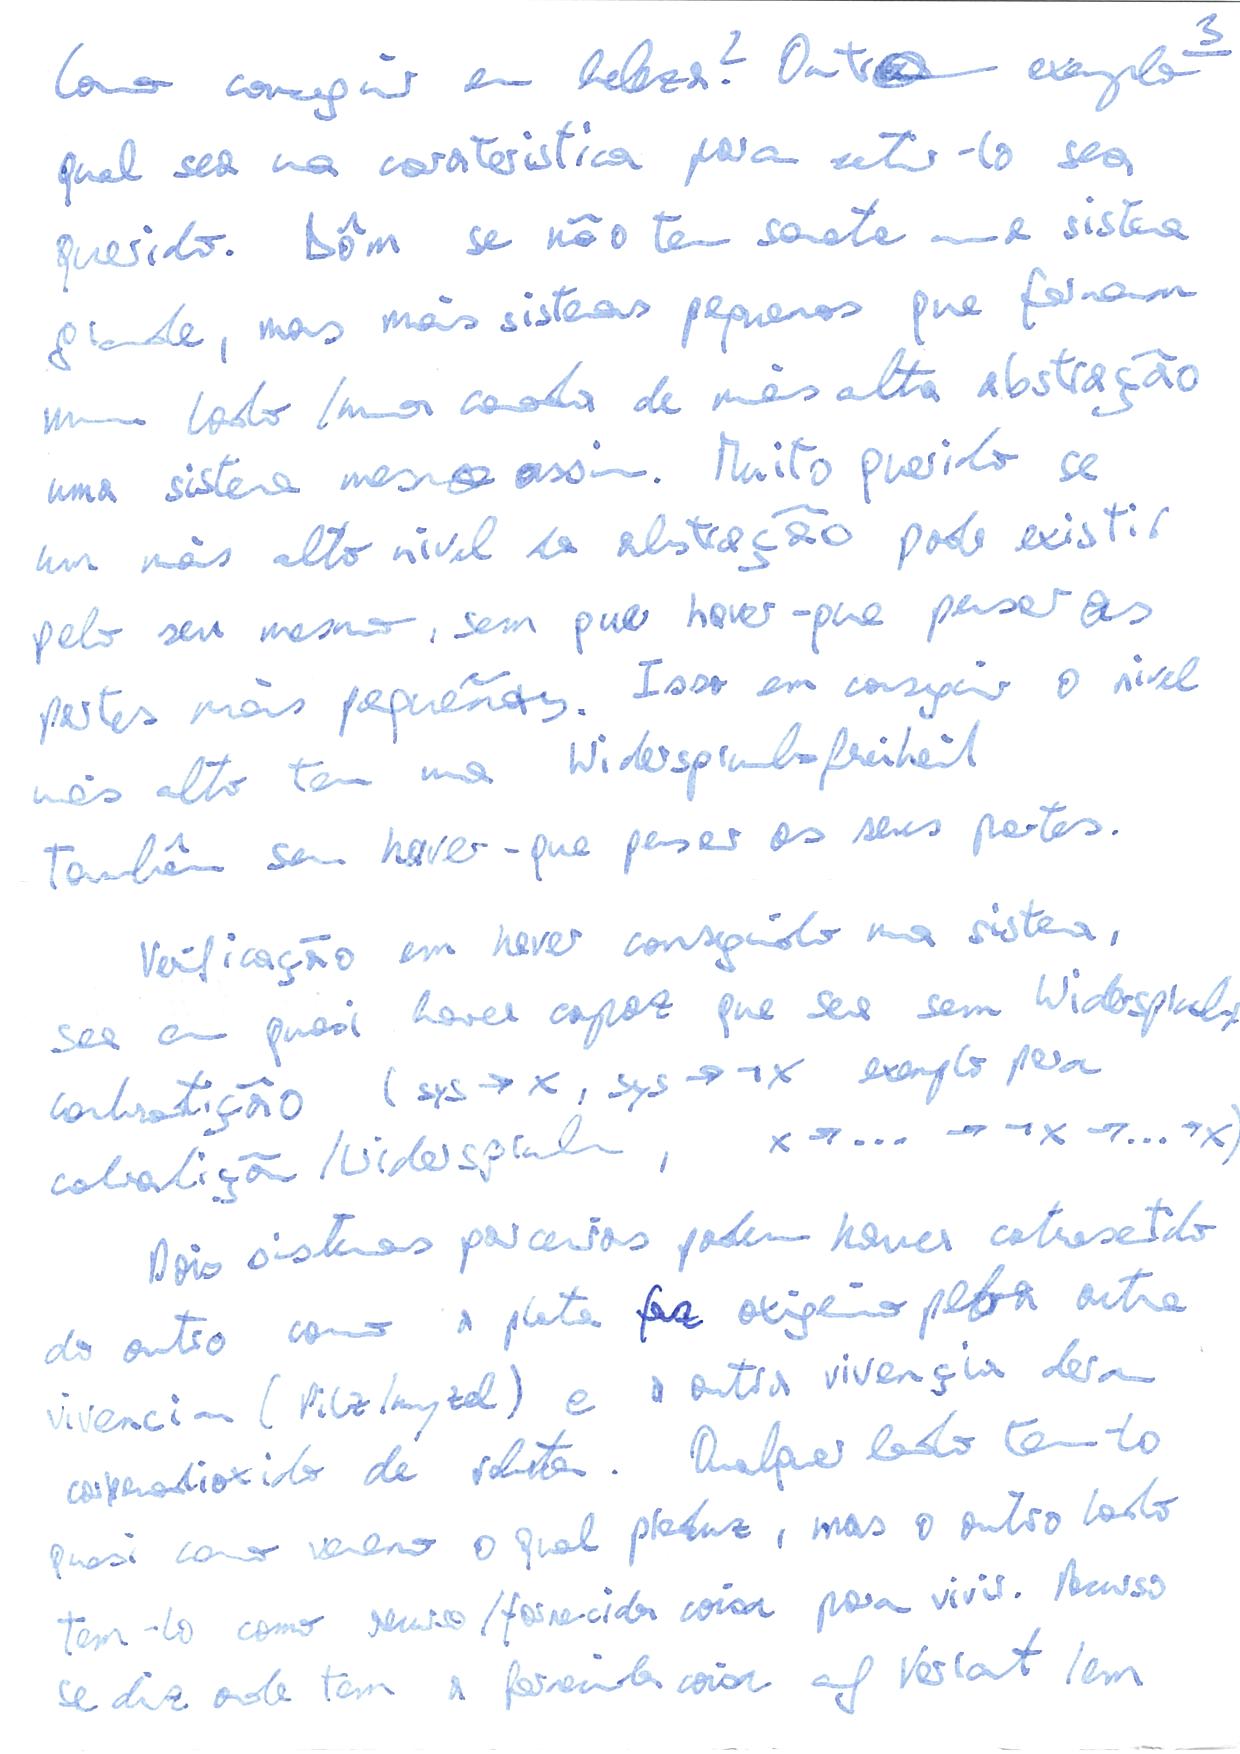 3
Como conseguir em beleza? Outro exemplo
qual sea una caraterística para sentir-lo sea
querido. Bôm se não tem soante una sistema
grande, mas màis sistemas pequenos que formam
num lado / uma camada de màis alta abstração
uma sistema mesmo assim. Muito querido se
um màis alto nivel da abstração pode existir
pelo seu mesmo, sem que haver-que pensar as
partes màis pequeñas. Isso em conseguir o nivel
màis alto tem una Widerspruchsfreiheit
também sem haver-que pensar as seus partes.
Verificação em haver conseguido una sistema,
sea em quasi haver capaz que sea sem Widerspruch
contratição (sys → x, sys → ¬x exemplo para
contratição / Widerspruch, x → ... → ¬x → ... → x)
Dois sistemas parcerias podem haver
do outro como a planta faz oxigênio pela outra
vivencia (Pilz/myzel) e a outra vivençia
de volta. Qualquer lado tem-lo
quasi como veneno o qual produz, mas o outro lado
tem-lo como recurso / fornecida coisa para vivir. Recurso
se diz onde tem a fornecida coisa auf Vorrat / em